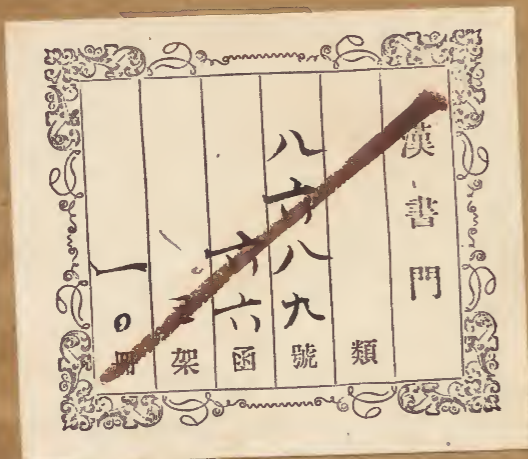 漢書門
類
八六八九號
六六函
架
一〇冊